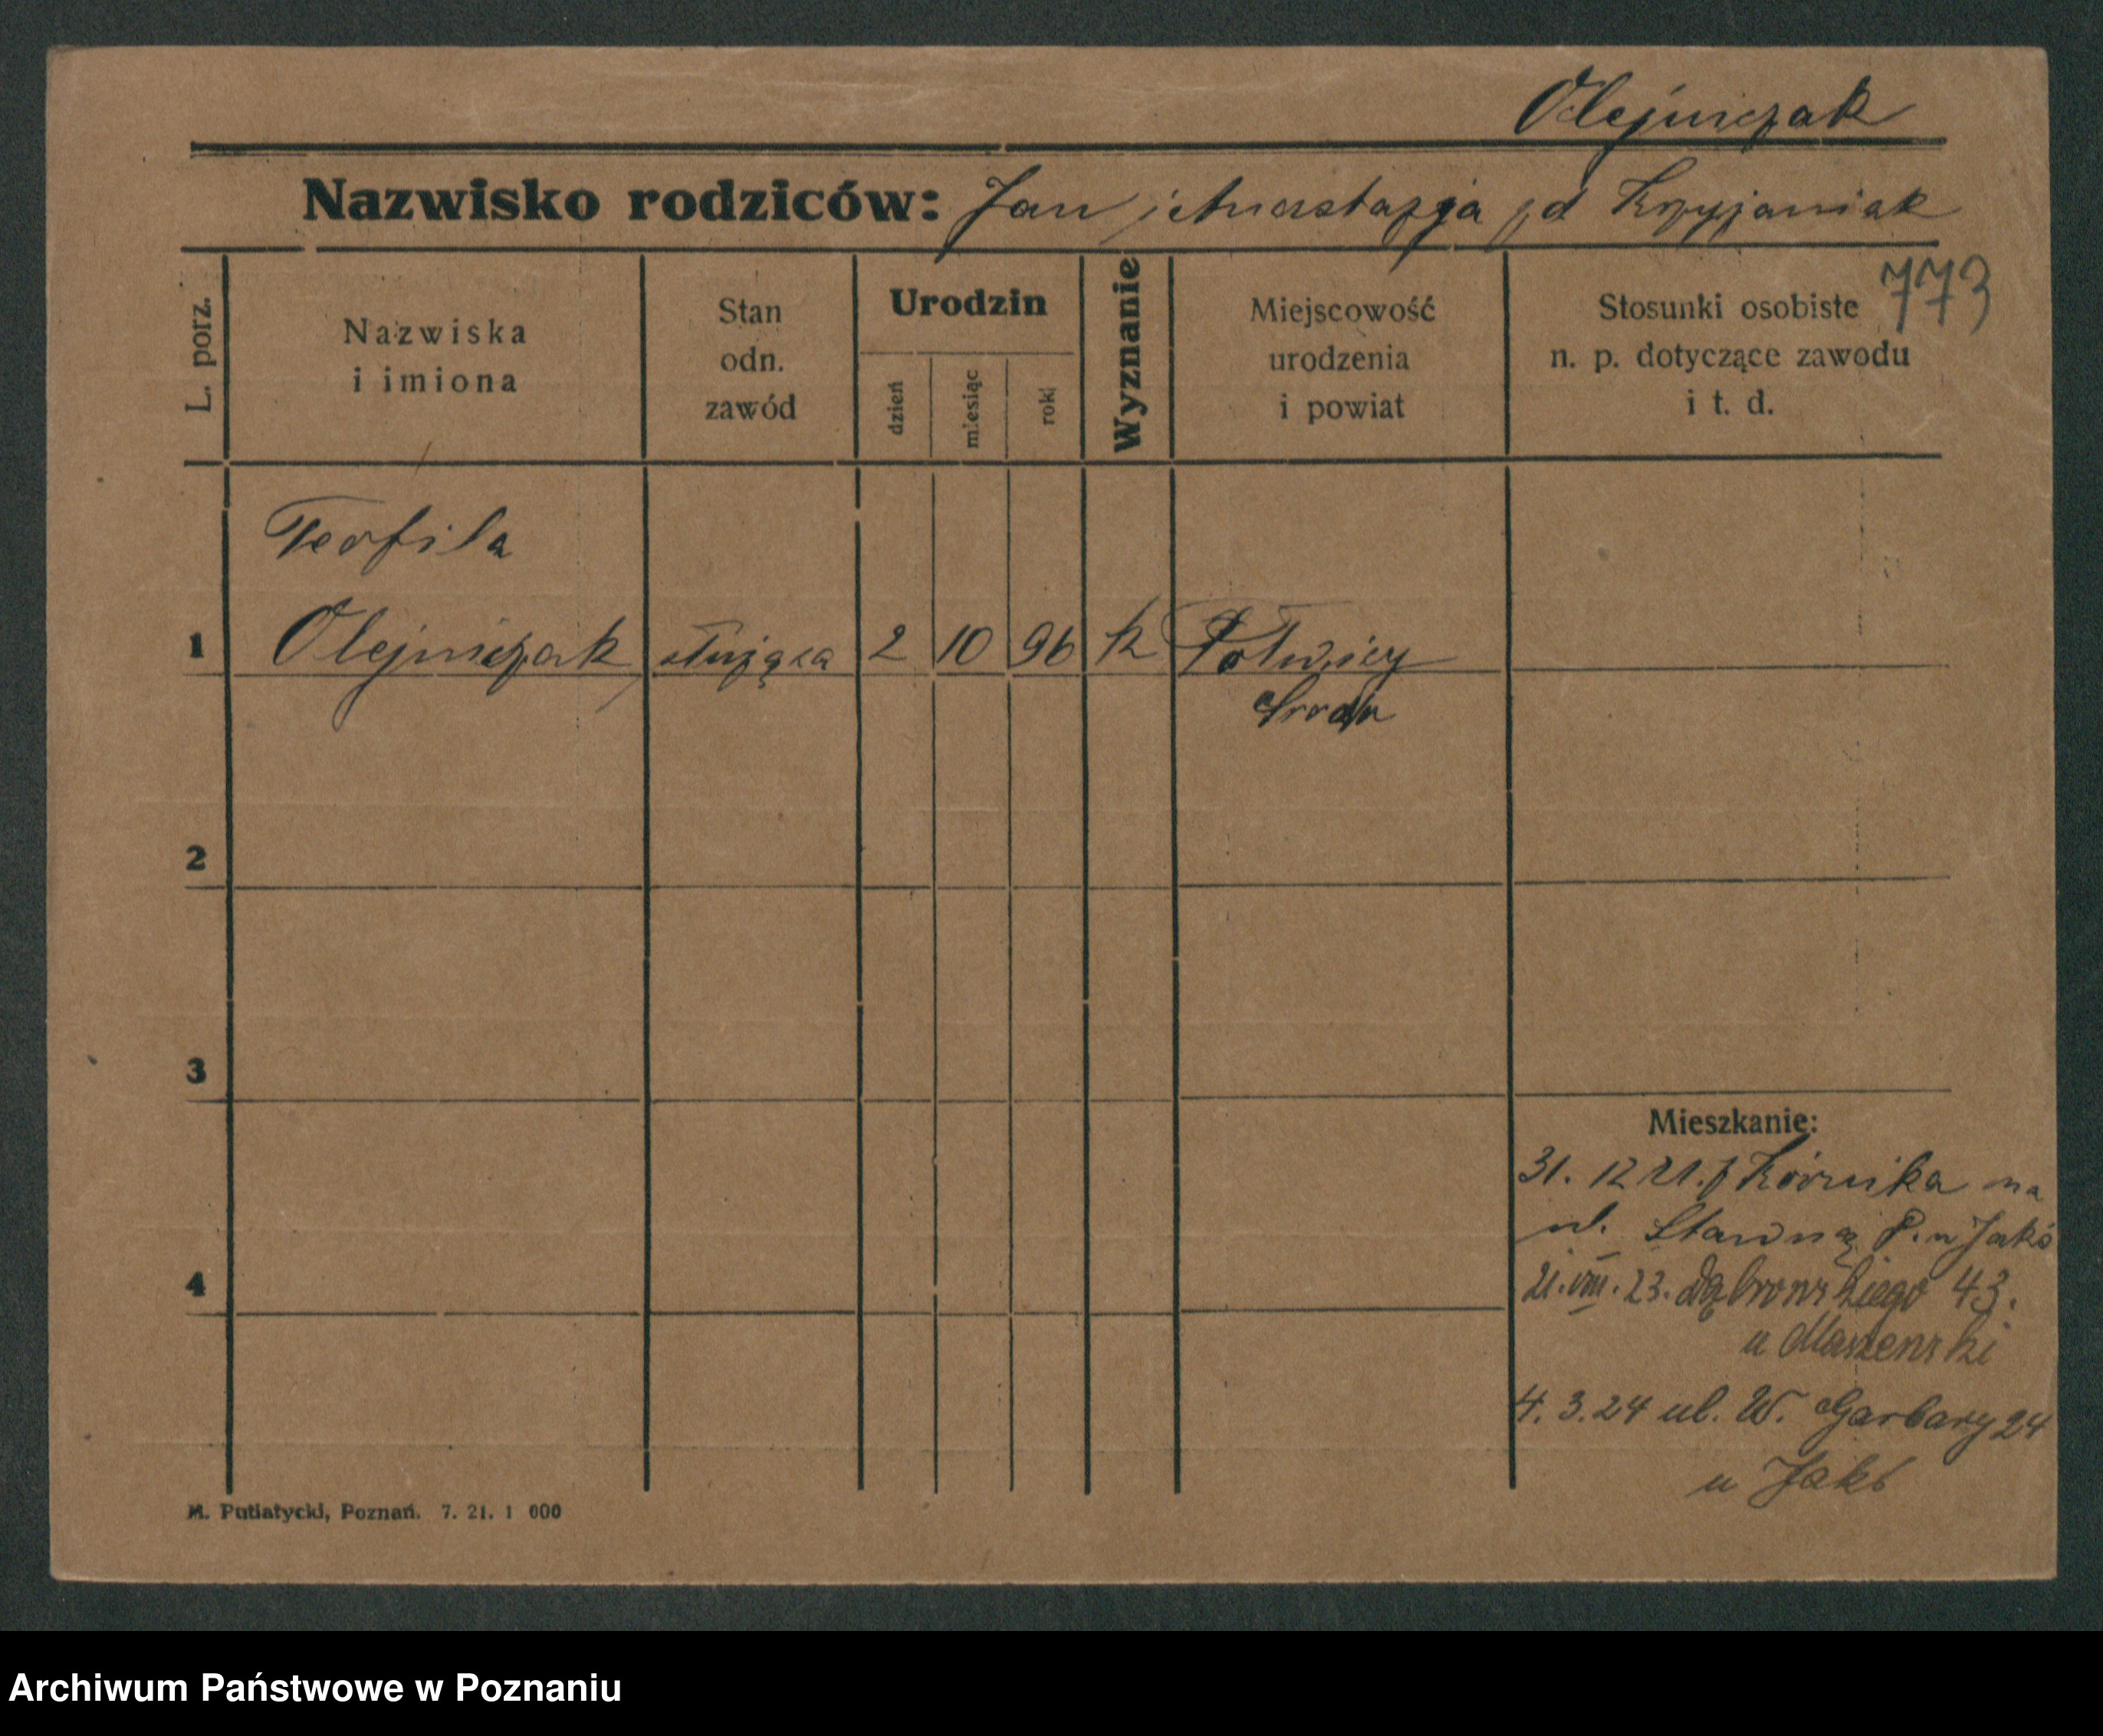 Olejniczak
Nazwisko rodziców: Jan i Anastazja zd Krzyżaniak
773
L. porz.
Nazwiska
i imiona
Stan
odn.
zawód
Urodzin
dzień
miesiąc
rok
Wyznanie
Miejscowość
urodzenia
i powiat
Stosunki osobiste
n. p. dotyczące zawodu
i t. d.
Teofila
1 Olejniczak służąca 2 10 96 k Połwicy
Środa
2
3
4
Mieszkanie:
31. 12 21. z Kórnika na
ul. Stawną P. u Jakó
21. VIII. 23. Dąbrowskiego 43.
u
4. 3. 24 ul. W. Garbary 24
u Jakó
M. Putiatycki, Poznań. 7. 21. 1 000
Archiwum Państwowe w Poznaniu